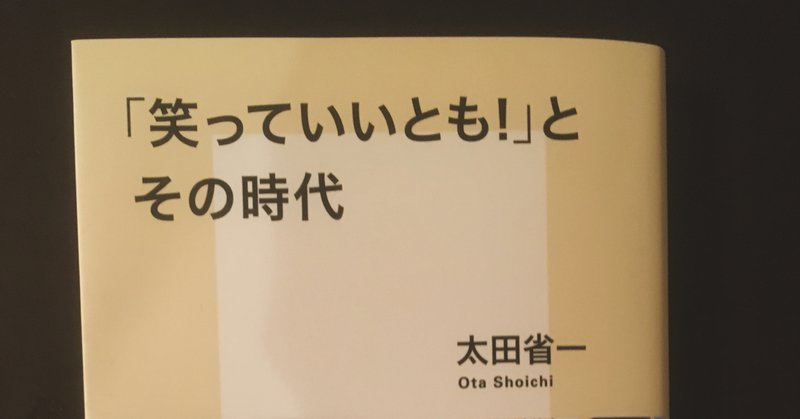 「笑っていいとも!」と
その時代
太田省一
Ota Shoichi